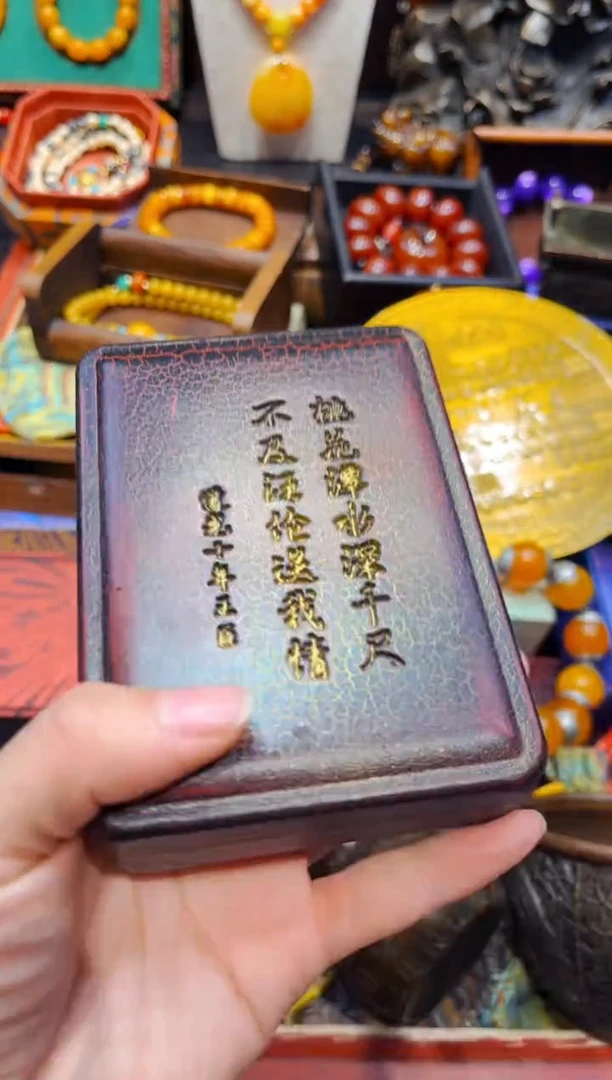 桃花潭水深千尺
不及汪伦送我情
十年